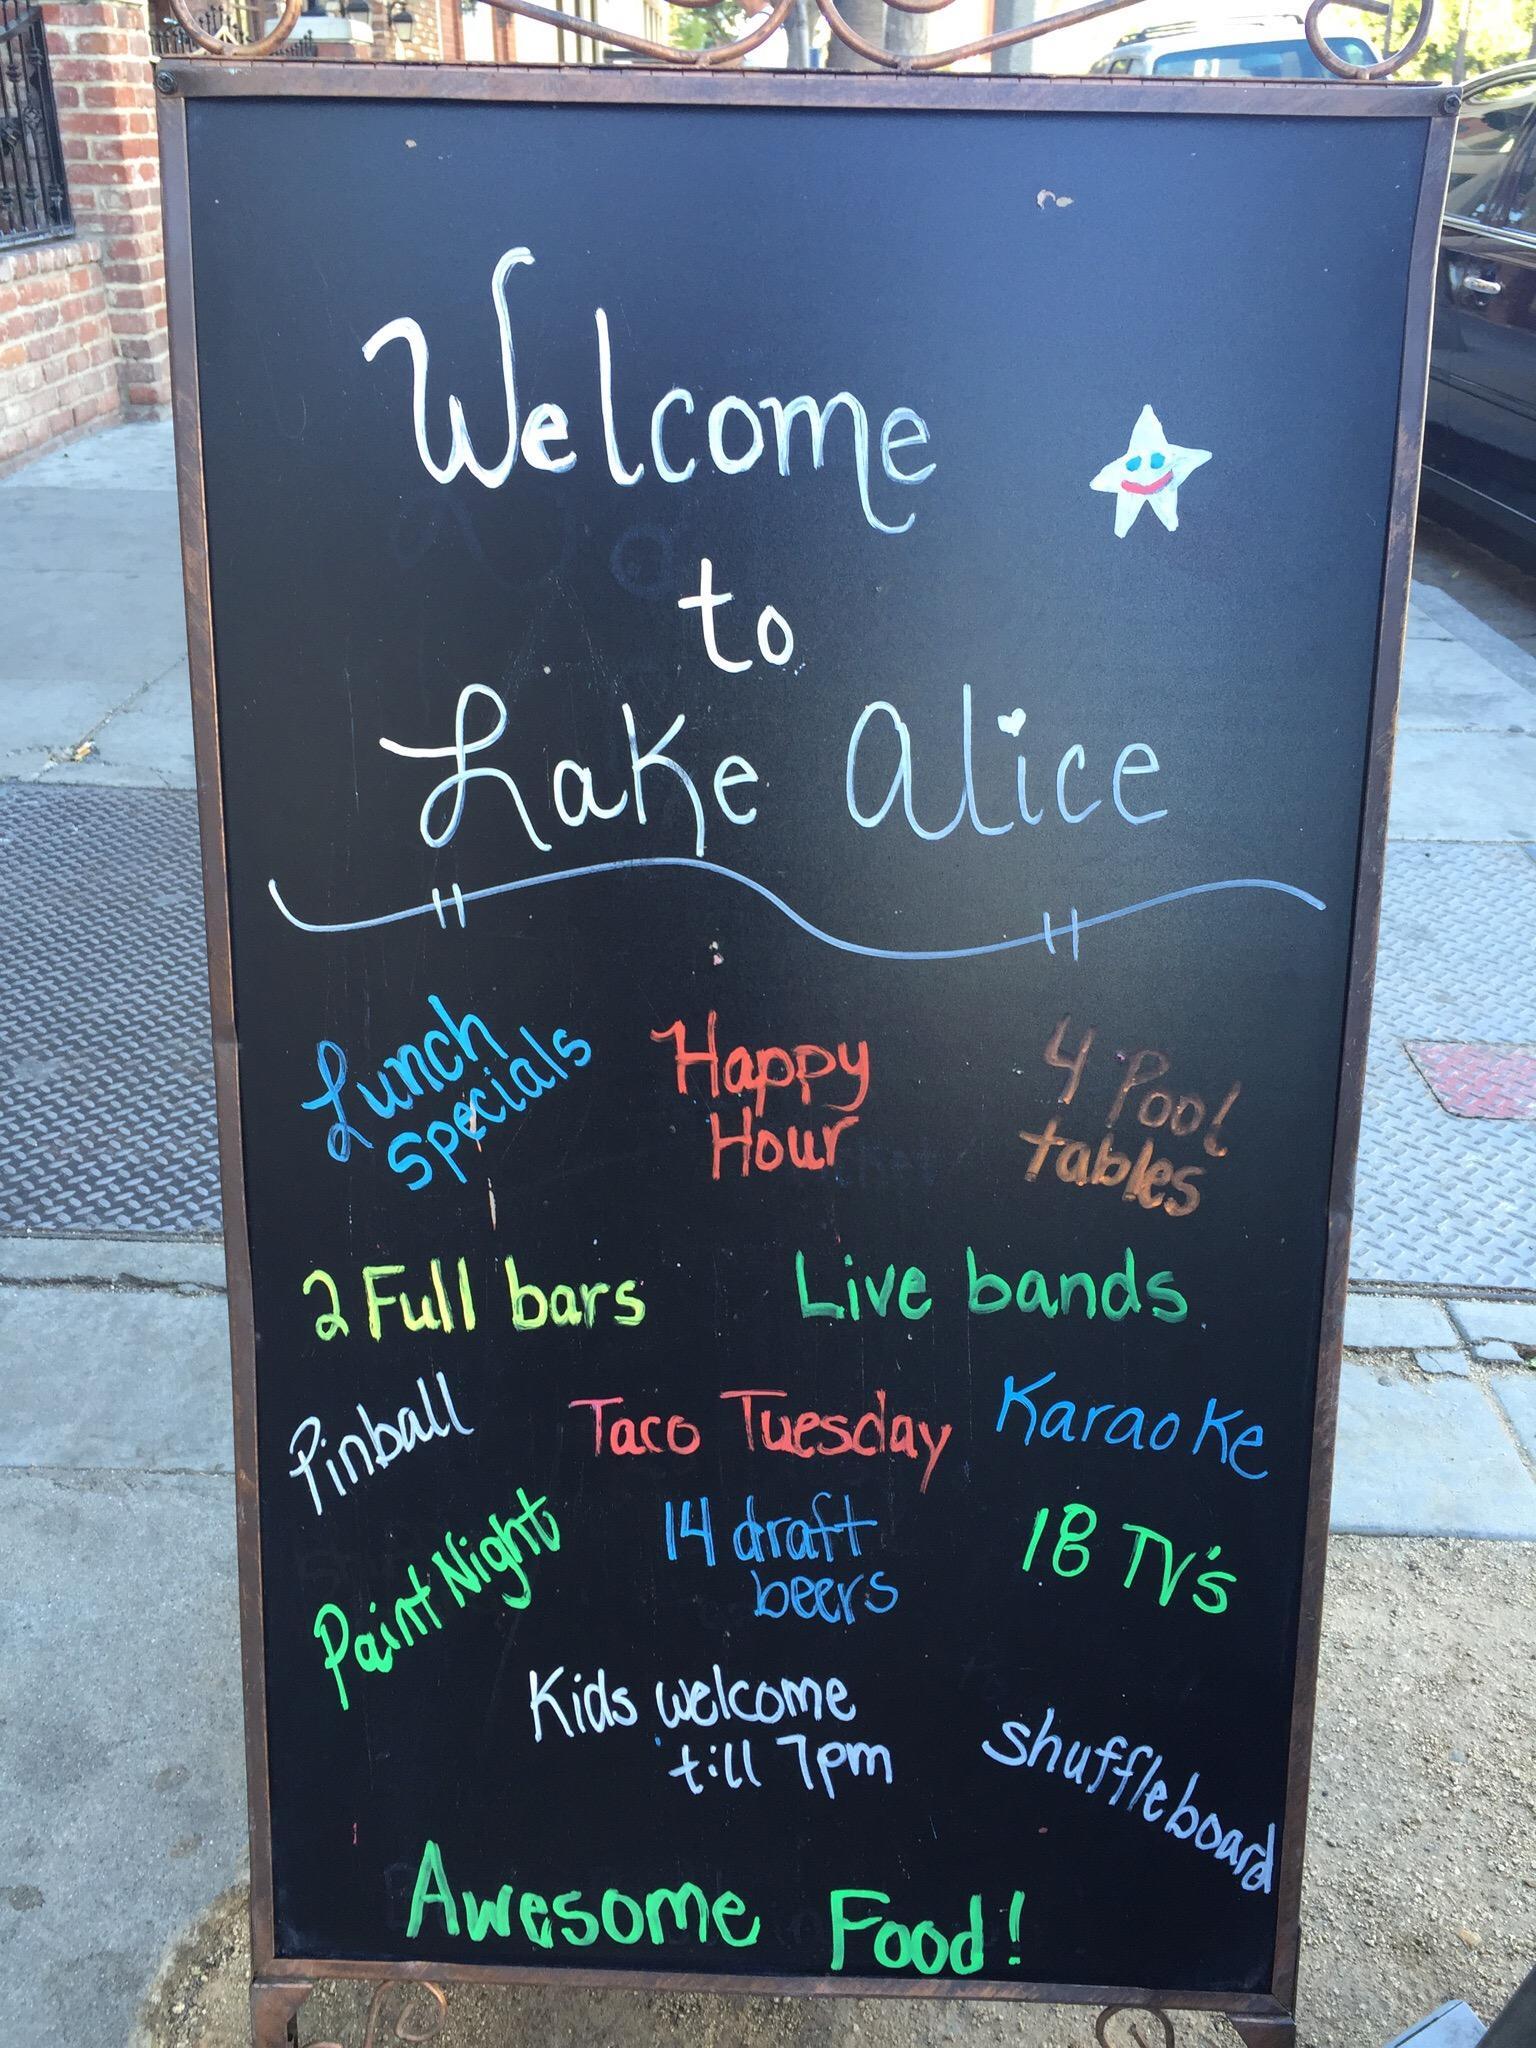 Welcome
to
Lake Alice
Lunch
Specials
Happy
Hour
4 Pool
tables
2 Full bars
Live bands
Pinball
Taco Tuesday
Karaoke
Paint Night
14 draft
beers
18 TV's
Kids welcome
till 7pm
shuffleboard
Awesome Food!